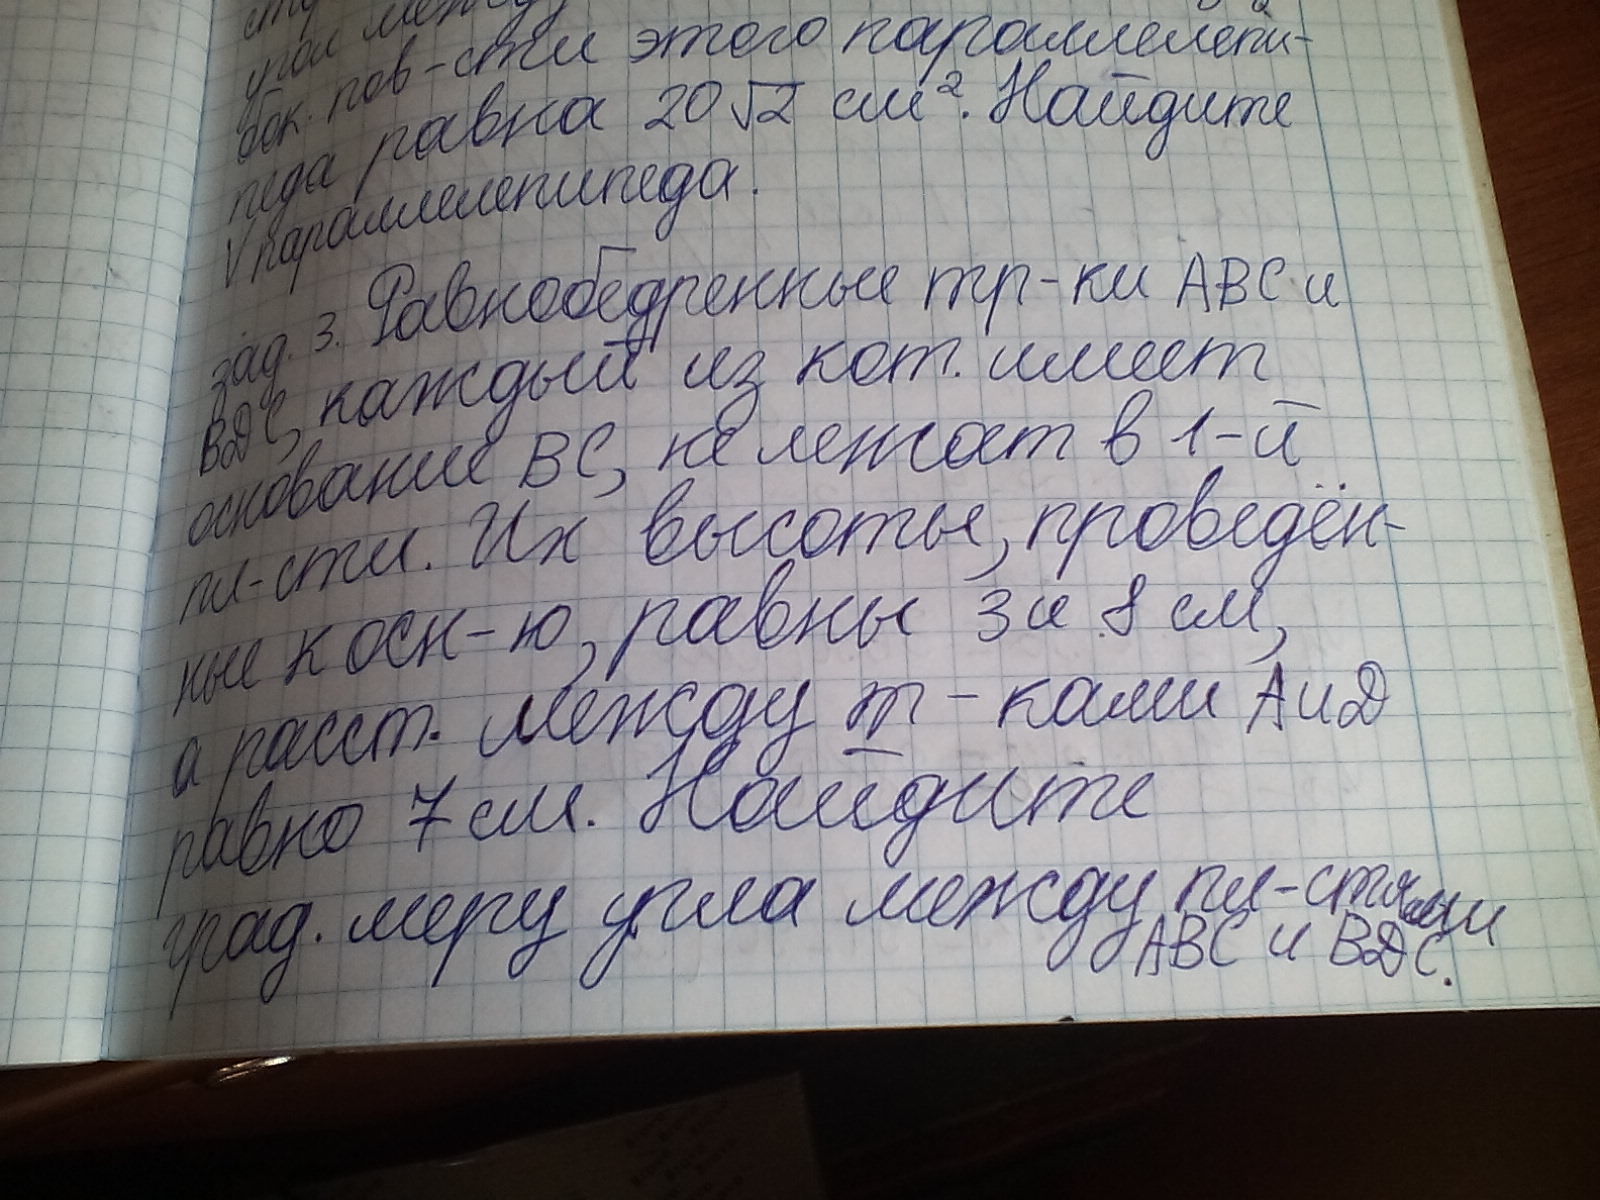 угол между
бок. пов-сти этого параллелепи-
педа равна 20√2 см². Найдите
V параллелепипеда.
зад. 3. Равнобедренные тр-ки ABC и
BДC, каждый из кот. имеет
основание BC, не лежат в 1-й
пл-сти. Их высоты, проведён-
ные к осн-ю, равны 3 и 8 см,
а расст. между т-ками A и Д
равно 7 см. Найдите
град. меру угла между пл-стями
ABC и BДC.